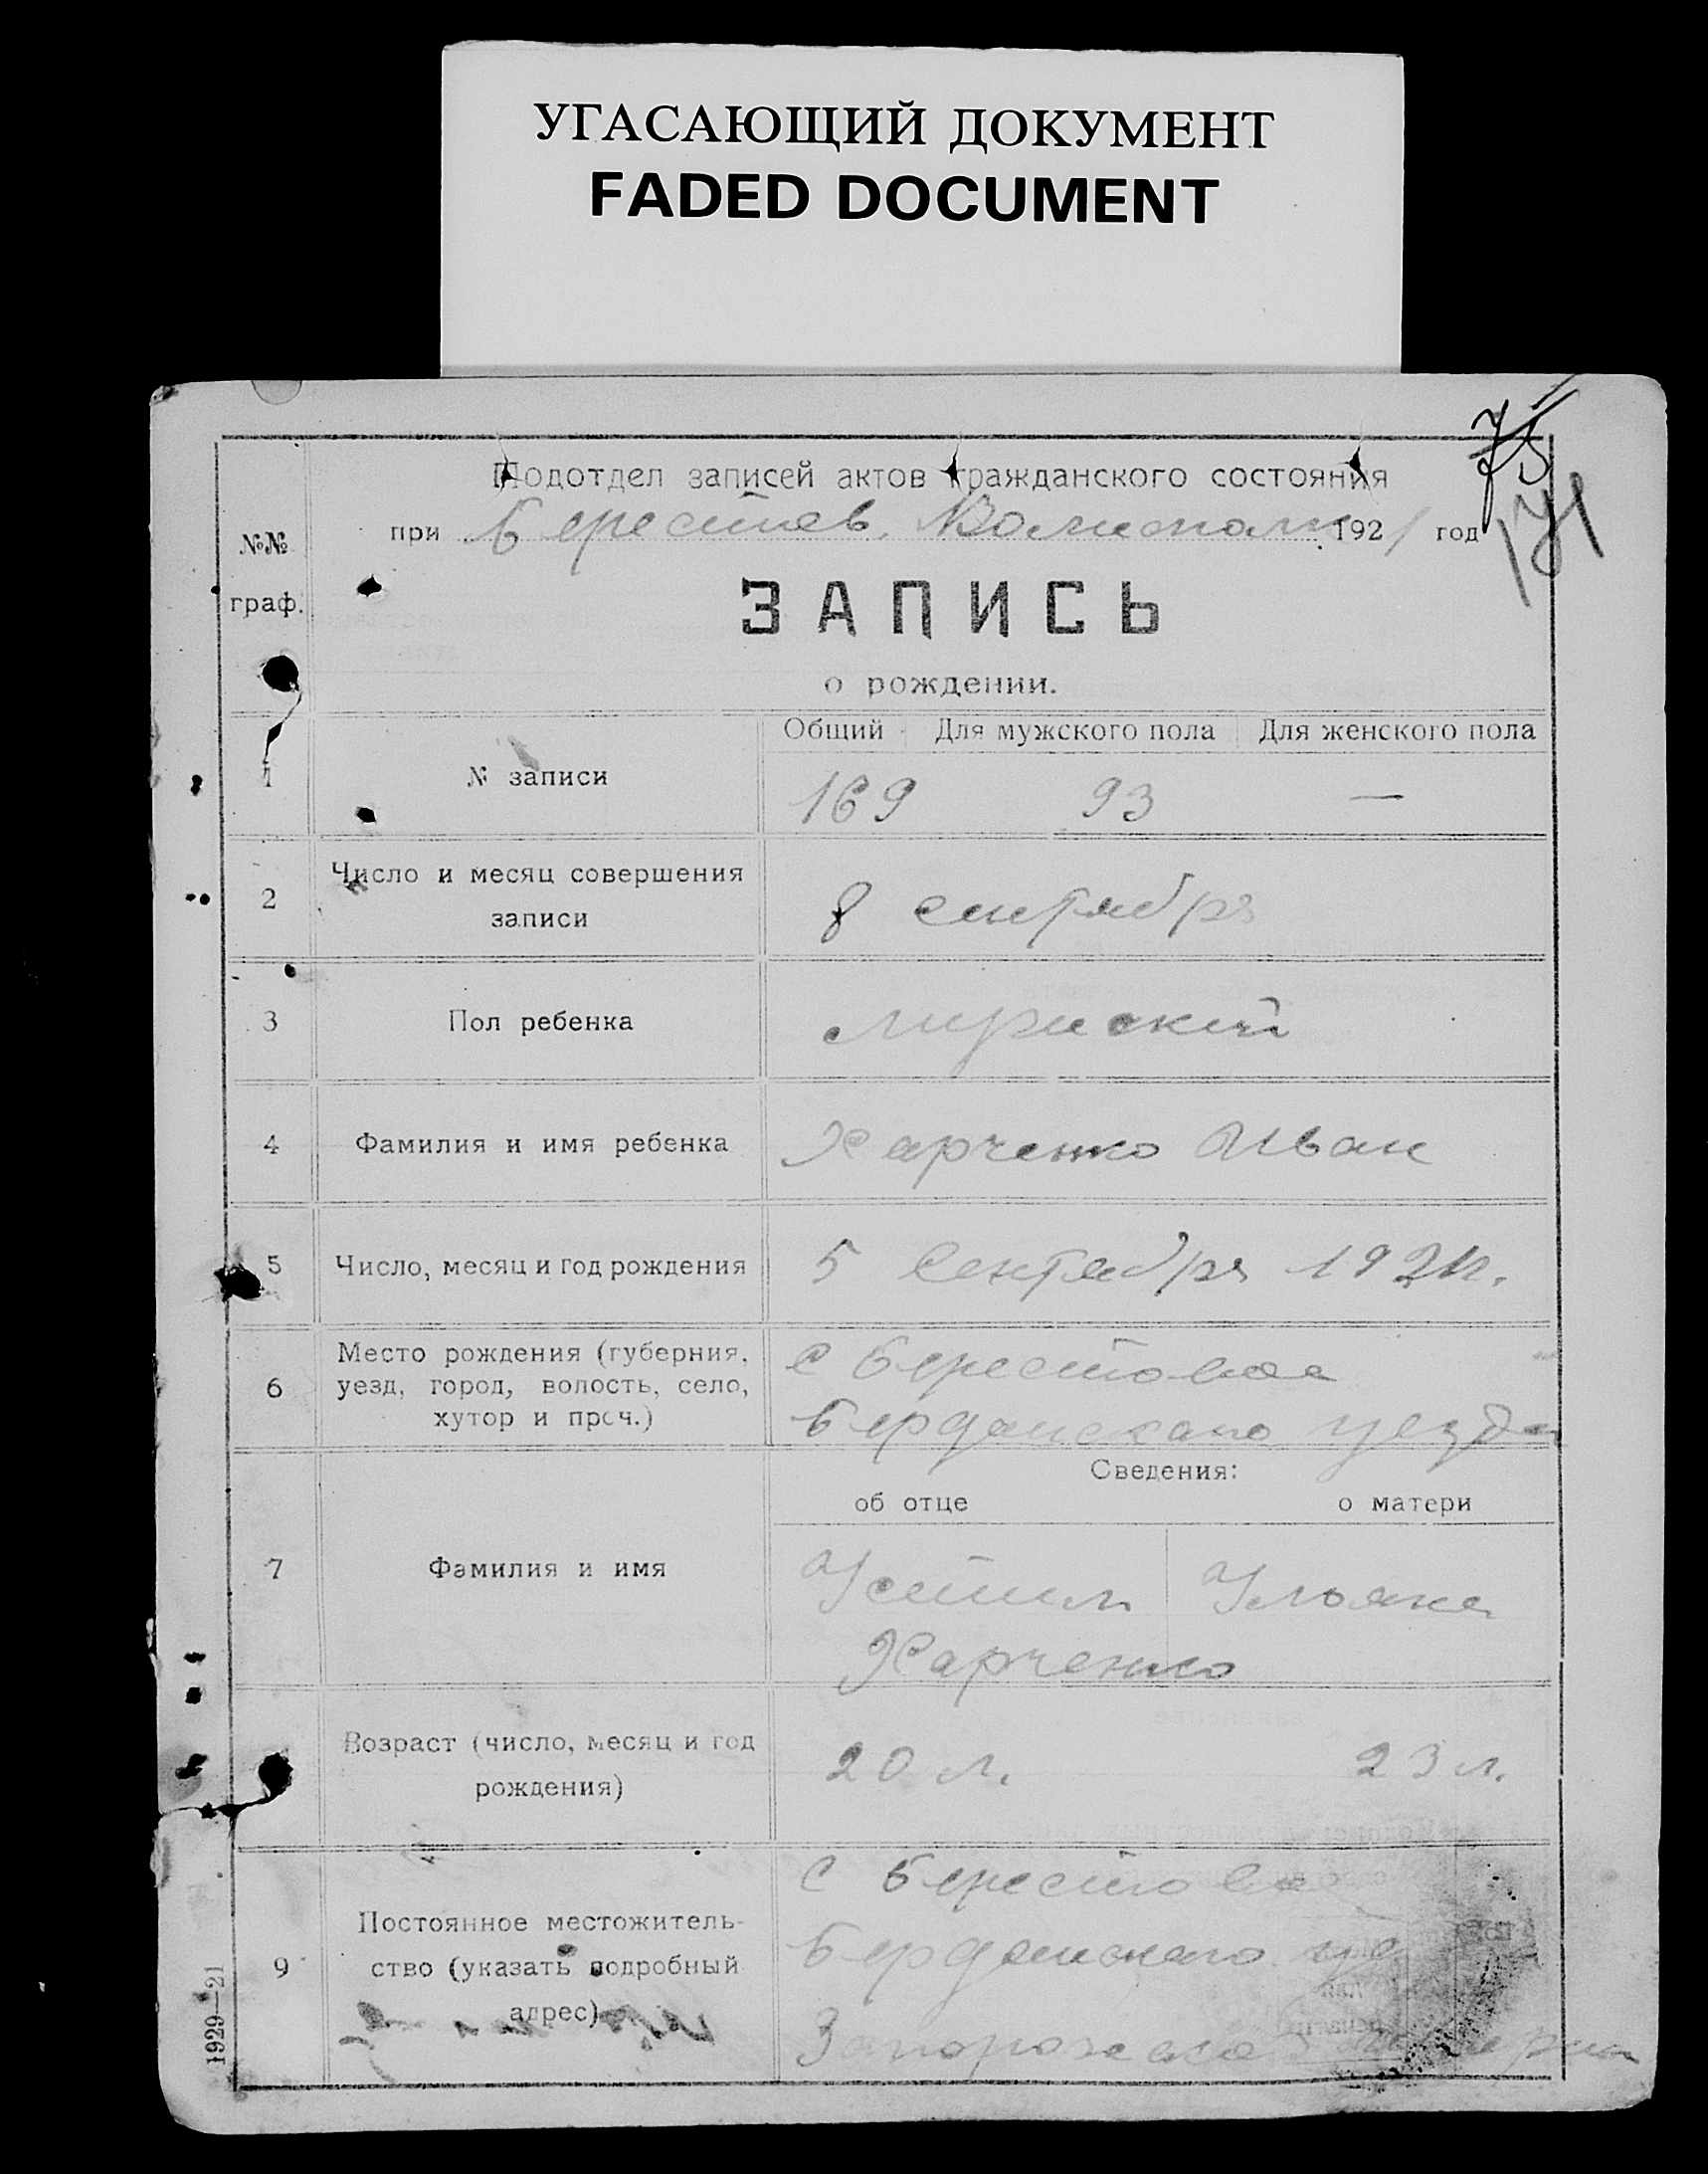 УГАСАЮЩИЙ ДОКУМЕНТ
FADED DOCUMENT
75
171
Подотдел записей актов гражданского состояния
при Берестов. Волисполк 1921 год
№№ граф.
ЗАПИСЬ
о рождении.
Общий Для мужского пола Для женского пола
1 № записи 169 93 —
2 Число и месяц совершения
записи 8 сентября
3 Пол ребенка мужский
4 Фамилия и имя ребенка Харченко Иван
5 Число, месяц и год рождения 5 Сентября 1921 г.
6 Место рождения (губерния,
уезд, город, волость, село,
хутор и проч.)
с Берестовое
Бердянскаго уезда
Сведения:
об отце о матери
7 Фамилия и имя Устим Ульяна
Харченко
Возраст (число, месяц и год
рождения) 20 л. 23 л.
9 Постоянное местожитель-
ство (указать подробный
адрес)
с Берестово
Бердянскаго у
1929—21